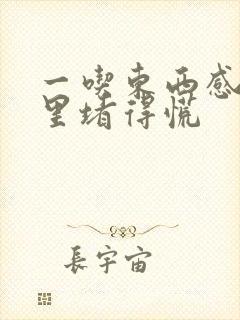 一喫東西感
里堵得慌
長宇宙